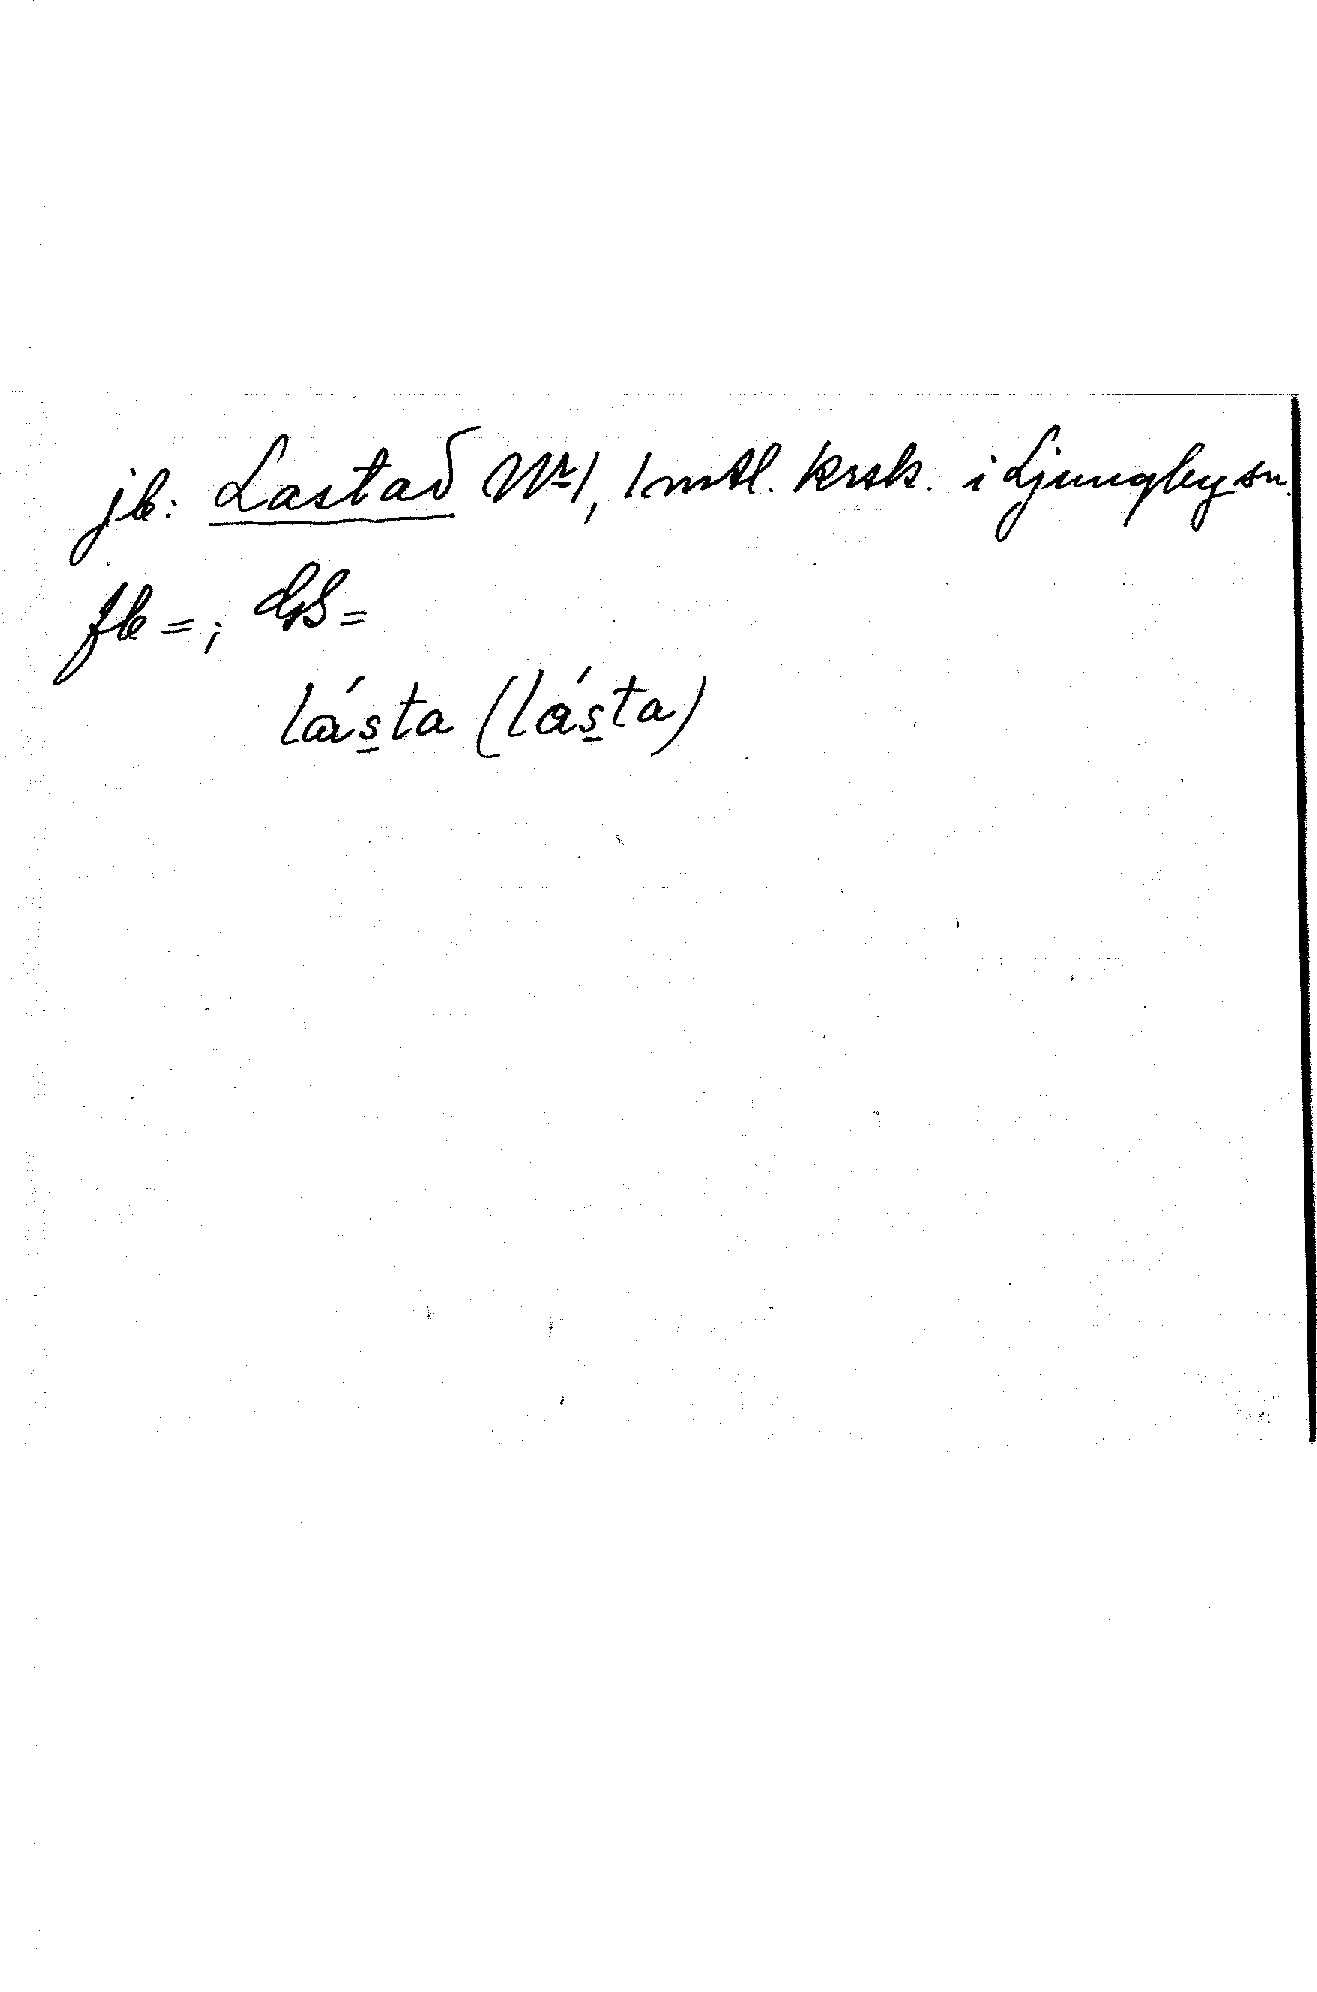 jb: Lastad Nr 1, 1 mtl. krsk. i Ljungby sn.
fb =; GS =
lás̲ta (lás̲ta)